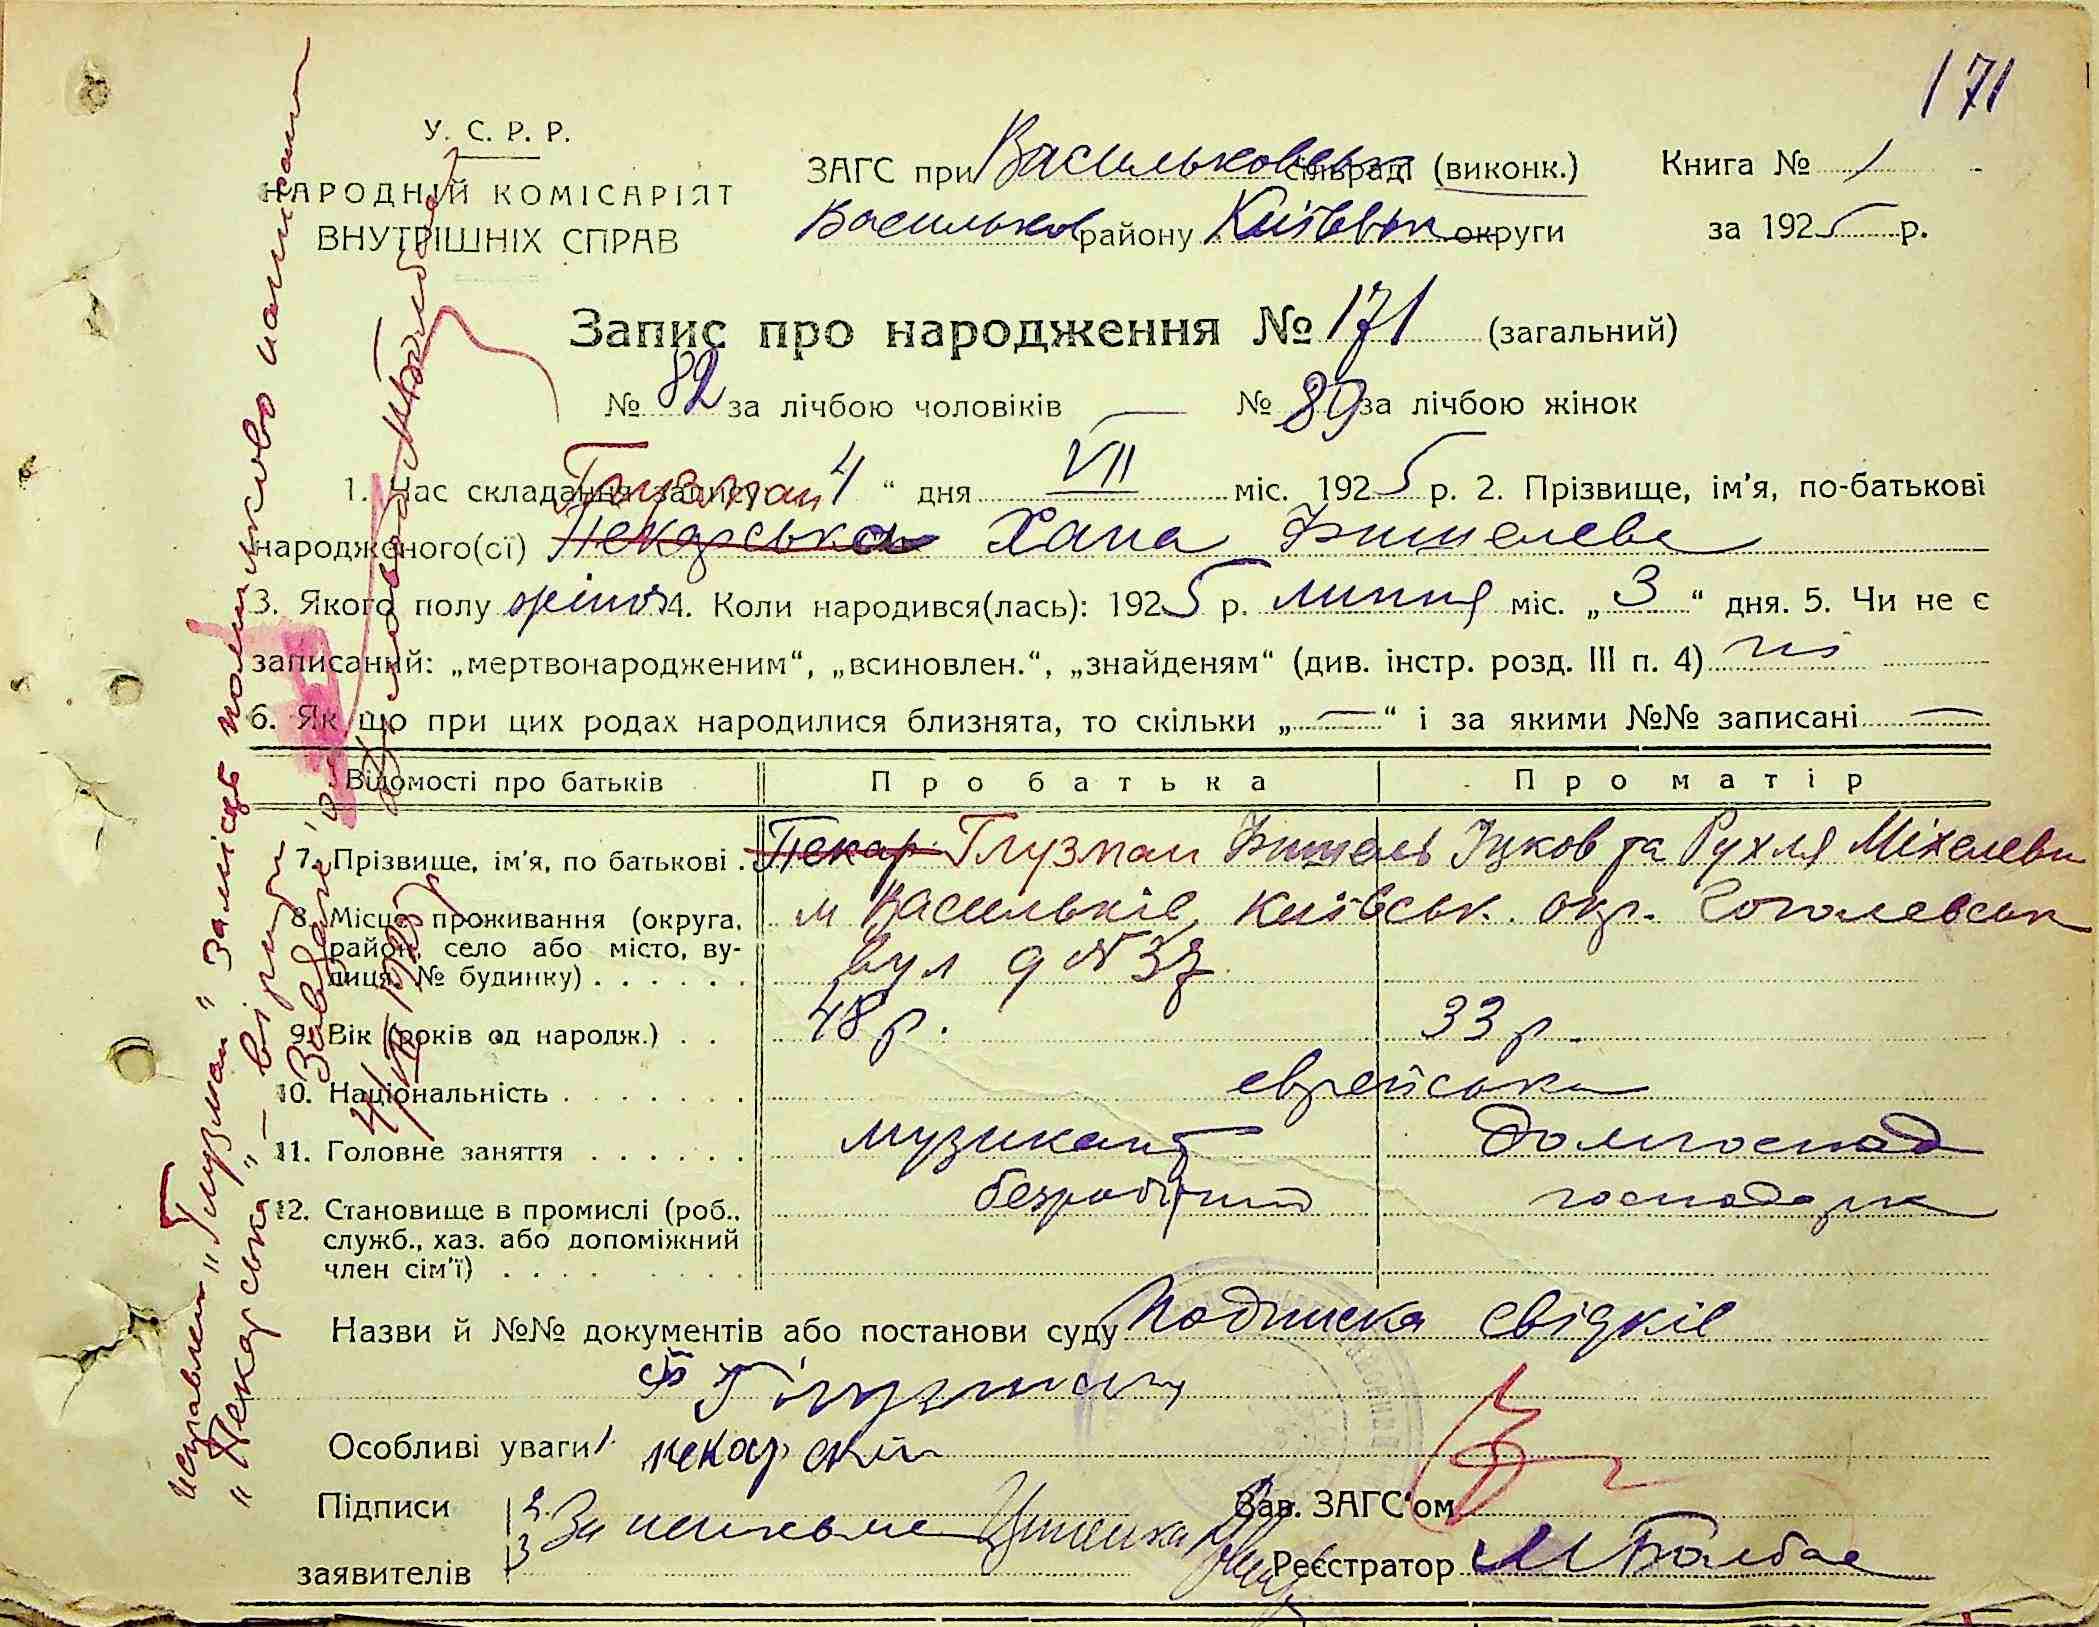 171
У. С. Р. Р.
НАРОДНІЙ КОМІСАРІЯТ
ВНУТРІШНІХ СПРАВ
ЗАГС при Васильковськ сільраді (виконк.)
Васильков району Київськ округи
Книга № 1
за 1925 р.
Запис про народження № 171 (загальний)
№ 82 за лічбою чоловіків — № 89 за лічбою жінок
Глузман
1. Час складання запису 4 “ дня VII міс. 1925 р. 2. Прізвище, ім’я, по-батькові
народженого(ої) Пекарська Хана Фишелева
3. Якого полу жіноч 4. Коли народився(лась): 1925 р. липня міс. „ 3 “ дня. 5. Чи не є
записаний: „мертвонародженим“, „всиновлен.“, „знайденям“ (див. інстр. розд. III п. 4) ні
6. Як що при цих родах народилися близнята, то скільки „ — “ і за якими №№ записані —
Відомості про батьків Про батька Про матір
7. Прізвище, ім’я, по батькові . Пекар Глузман Фишель Іцков та Рухля Міхелева
8. Місце проживання (округа, м Васильків, Київськ. окр. Гоголевськ
район, село або місто, ву- вул д № 37
лиця, № будинку) . . . . . .
9. Вік (років од народж.) . . 48 р. 33 р.
10. Національність . . . . . . . еврейська
11. Головне заняття . . . . . . музикант Домгоспод
12. Становище в промислі (роб., безробітний господарк
служб., хаз. або допоміжний
член сім’ї) . . . . . . . .
Назви й №№ документів або постанови суду Подписка свідків
Особливі уваги
Підписи 2. За
заявителів 3
Зав. ЗАГС‘ом
Реєстратор М Балбас
„Глузман“ замісць помилково написаного
„Пекарська“ – вірити